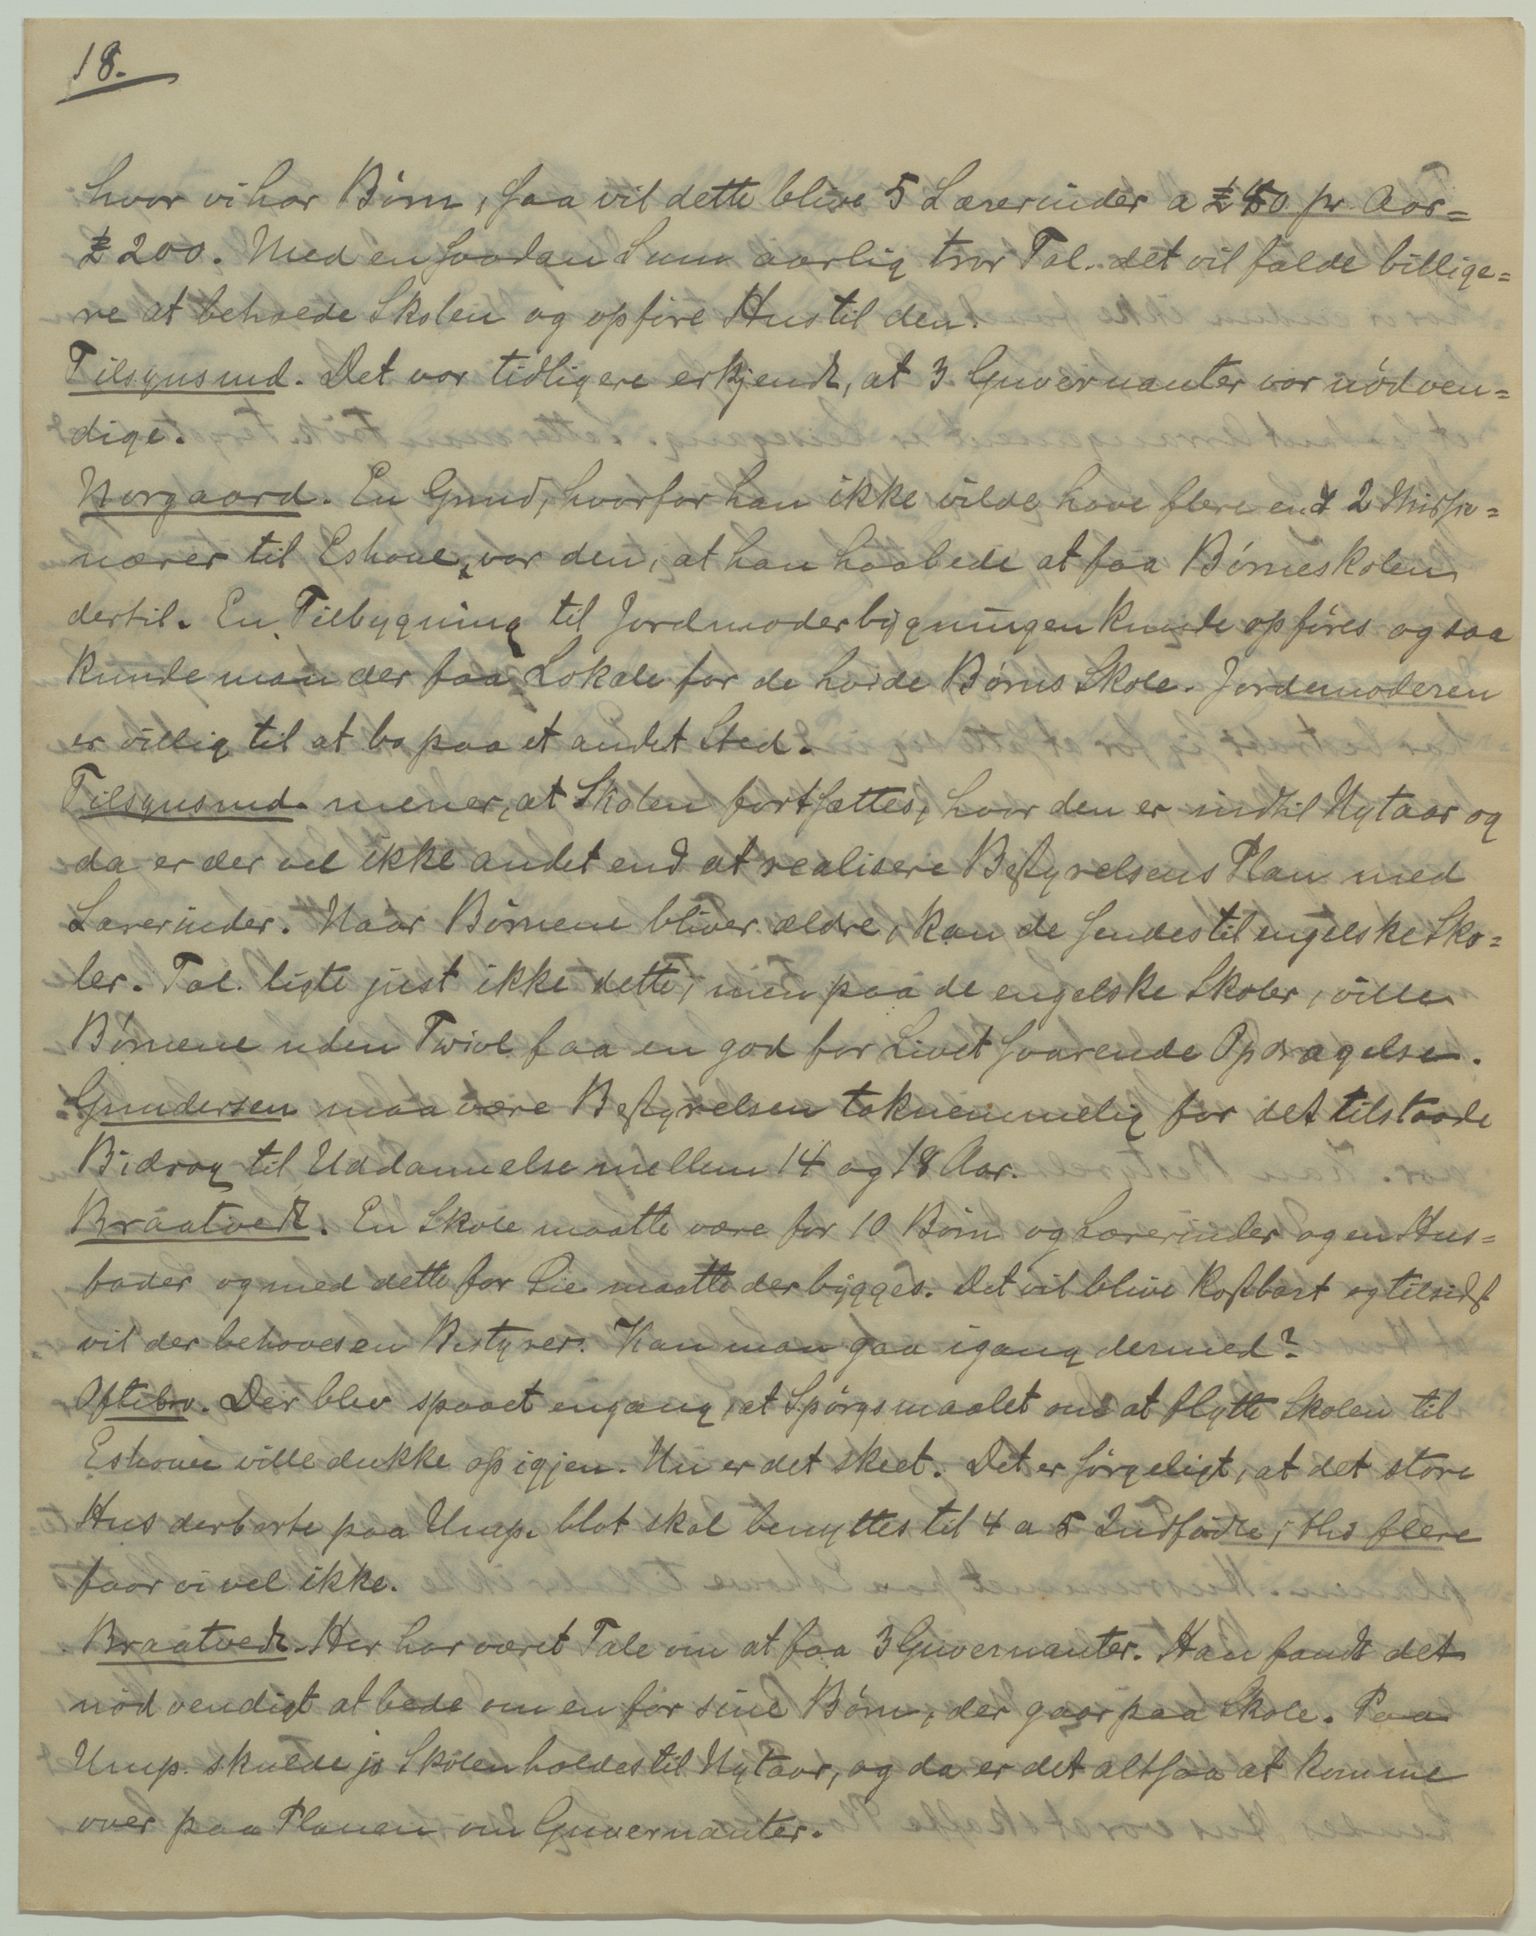 18.
hvor vi har Børn, saa vil dette blive 5 Lærerinder a £ 40 pr. Aar =
£ 200. Med en saadan Sum aarlig tror Tal. det vil falde billige=
re at beholde Skolen og opføre Hus til den.
Tilsynsmd. Det var tidligere erkjendt, at 3 Guvernanter var nødven=
dige.
Norgaard. En Grund, hvorfor han ikke vilde have flere end 2 Missio=
nærer til Eshove, var den, at han haabede at faa Børneskolen
dertil. En Tilbygning til Jordmoderbygningen kunde opføres og saa
kunde man der faa Lokale for de hvide Børns Skole. Jordemoderen
er villig til at bo paa et andet Sted.
Tilsynsmd. mener, at Skolen fortsættes, hvor den er indtil Nytaar og
da er der vel ikke andet end at realisere Bestyrelsens Plan med
Lærerinder. Naar Børnene bliver ældre, kan de sendes til engelske Sko=
ler. Tal. ligte just ikke dette, men paa de engelske Skoler, ville
Børnene uden Tvivl faa en god for Livet svarende Opdragelse.
Gundersen maa være Bestyrelsen taknemmelig for det tilstaaede
Bidrag til Uddannelse mellem 14 og 18 Aar.
Braatvedt. En Skole maatte være for 10 Børn og Lærerinder og en Hus=
fader og med dette for Øie maatte der bygges. Det vil blive kostbart og tilsidst
vil der behøves en Bestyrer. Kan man gaa igang dermed?
Oftebro. Der blev spaaet engang, at Spørgsmaalet om at flytte Skolen til
Eshowe ville dukke op igjen. Nu er det skeet. Det er sørgeligt, at det store
Hus derborte paa Ump. blot skal benyttes til 4 a 5 Indfødte, thi flere
faar vi vel ikke.
Braatvedt. Her har været Tale om at faa 3 Guvernanter. Han fandt det
nødvendigt at bede om en for sine Børn, der gaar paa Skole. Paa
Ump. skulde jo Skolen holdes til Nytaar, og da er det altsaa at komme
over paa Planen om Guvernanter.